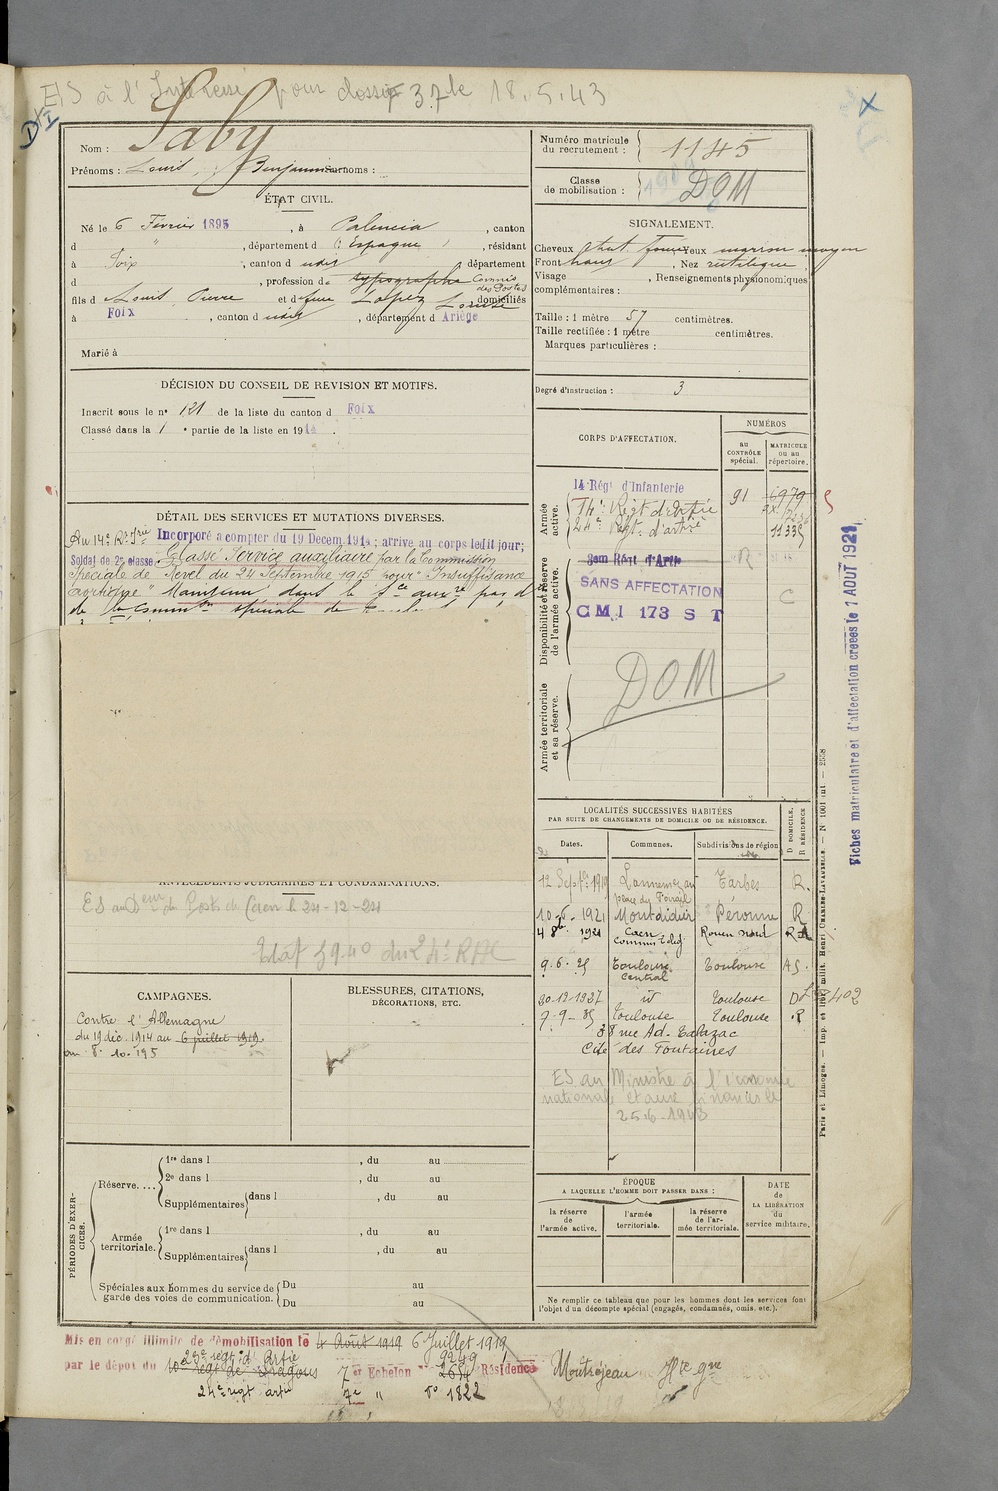 ES à l'Intérieur pour dossier 37 le 18.5.43
Nom : Saby
Prénoms : Louis, Benjamin Surnoms :
Numéro matricule du recrutement : 1145
Classe de mobilisation : DOM
ÉTAT CIVIL.
Né le 6 Février 1895, à Palencia, canton
d " , département d (Espagne), résidant
à Foix, canton d udit, département
d , profession de typographe Commis des Postes
fils d Louis, Pierre et de feue Lopez Louise domiciliés
à Foix, canton d udit, département d Ariège
Marié à
SIGNALEMENT.
Cheveux chat. foncé Yeux marron moyen
Front haut, Nez rectiligne
Visage , Renseignements physionomiques
complémentaires :
Taille : 1 mètre 57 centimètres.
Taille rectifiée : 1 mètre centimètres.
Marques particulières :
Degré d'instruction : 3
DÉCISION DU CONSEIL DE REVISION ET MOTIFS.
Inscrit sous le n° 121 de la liste du canton d Foix
Classé dans la 1e partie de la liste en 1914.
CORPS D'AFFECTATION.
NUMÉROS
au CONTRÔLE spécial.
MATRICULE ou au répertoire.
Armée active.
14 Régt d'Infanterie 91 6979
74e Régt d'Infrie
24e Régt. d'artrie 11335
Disponibilité et réserve de l'armée active.
3em Régt d'Artie R
SANS AFFECTATION
C M I 173 S T C
Armée territoriale et sa réserve.
DOM
Fiches matriculaire et d'affectation créées le 7 AOUT 1921
DÉTAIL DES SERVICES ET MUTATIONS DIVERSES.
Au 14e Rt Infrie Incorporé à compter du 19 Décem. 1914; arrivé au corps ledit jour;
Soldat de 2e classe. Classé Service auxiliaire par la Commission
spéciale de Revel du 24 Septembre 1915 pour "Insuffisance
aortique" Maintenu dans le Sce auxre par d
de la Common spéciale de
ANTÉCÉDENTS JUDICIAIRES ET CONDAMNATIONS.
ES au Deur des Posts de Caen le 24-12-24
Etat 59.40 du 24e RAC
LOCALITÉS SUCCESSIVES HABITÉES
PAR SUITE DE CHANGEMENTS DE DOMICILE OU DE RÉSIDENCE.
Dates. Communes. Subdivisions de région
D DOMICILE. R RÉSIDENCE
12 Septre 1919 Lannemezan Tarbes R.
10-6-1921 Montdidier Péronne R
4 8bre 1921 Caen Rouen nord R
9.6.25 Toulouse central Toulouse
30-12-1927 id Toulouse D
7-9-35 Toulouse Toulouse R
38 rue Ad. Talazac
Cité des Fontaines
ES au Ministre à l'économie
nationale et aux finances le
25-6-1943
CAMPAGNES.
Contre l'Allemagne
du 19 déc. 1914 au 6 juillet 1919.
BLESSURES, CITATIONS, DÉCORATIONS, ETC.
PÉRIODES D'EXERCICES.
Réserve....
1re dans l , du au
2e dans l , du au
Supplémentaires dans l , du au
Armée territoriale.
1re dans l , du au
Supplémentaires dans l , du au
Spéciales aux hommes du service de garde des voies de communication.
Du au
Du au
ÉPOQUE
A LAQUELLE L'HOMME DOIT PASSER DANS :
la réserve de l'armée active.
l'armée territoriale.
la réserve de l'armée territoriale.
DATE de LA LIBÉRATION du service militaire.
Ne remplir ce tableau que pour les hommes dont les services font
l'objet d'un décompte spécial (engagés, condamnés, omis, etc.).
Paris et Limoges. — Imp. et libr. milit. Henri CHARLES-LAVAUZELLE. — N° 1001 int. — 2558
Mis en congé illimité de démobilisation le 4 Août 1919 6 Juillet 1919
23e régt d'Artie 9249
par le dépôt du 10e régt de Dragons 7er Echelon 2614 Résidence Montréjeau Hte Gne
24e régt artie 7e " n° 1822